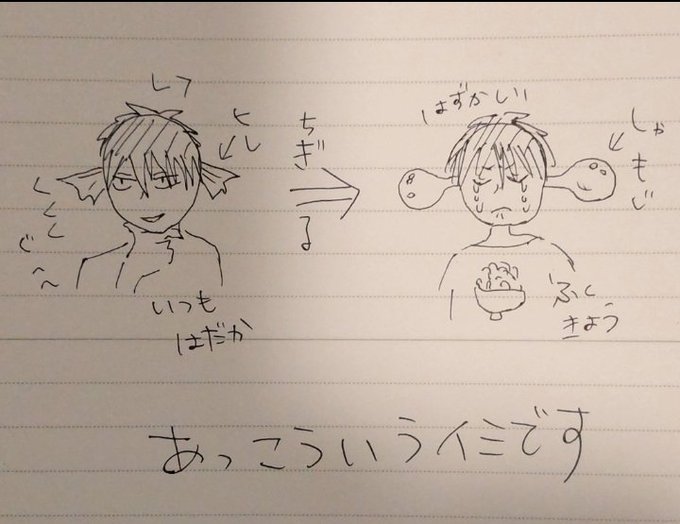 ヒレ
いつも
はだか
ちぎる
はずかしい
しゃもじ
ふく
きよう
あっこういうイミです